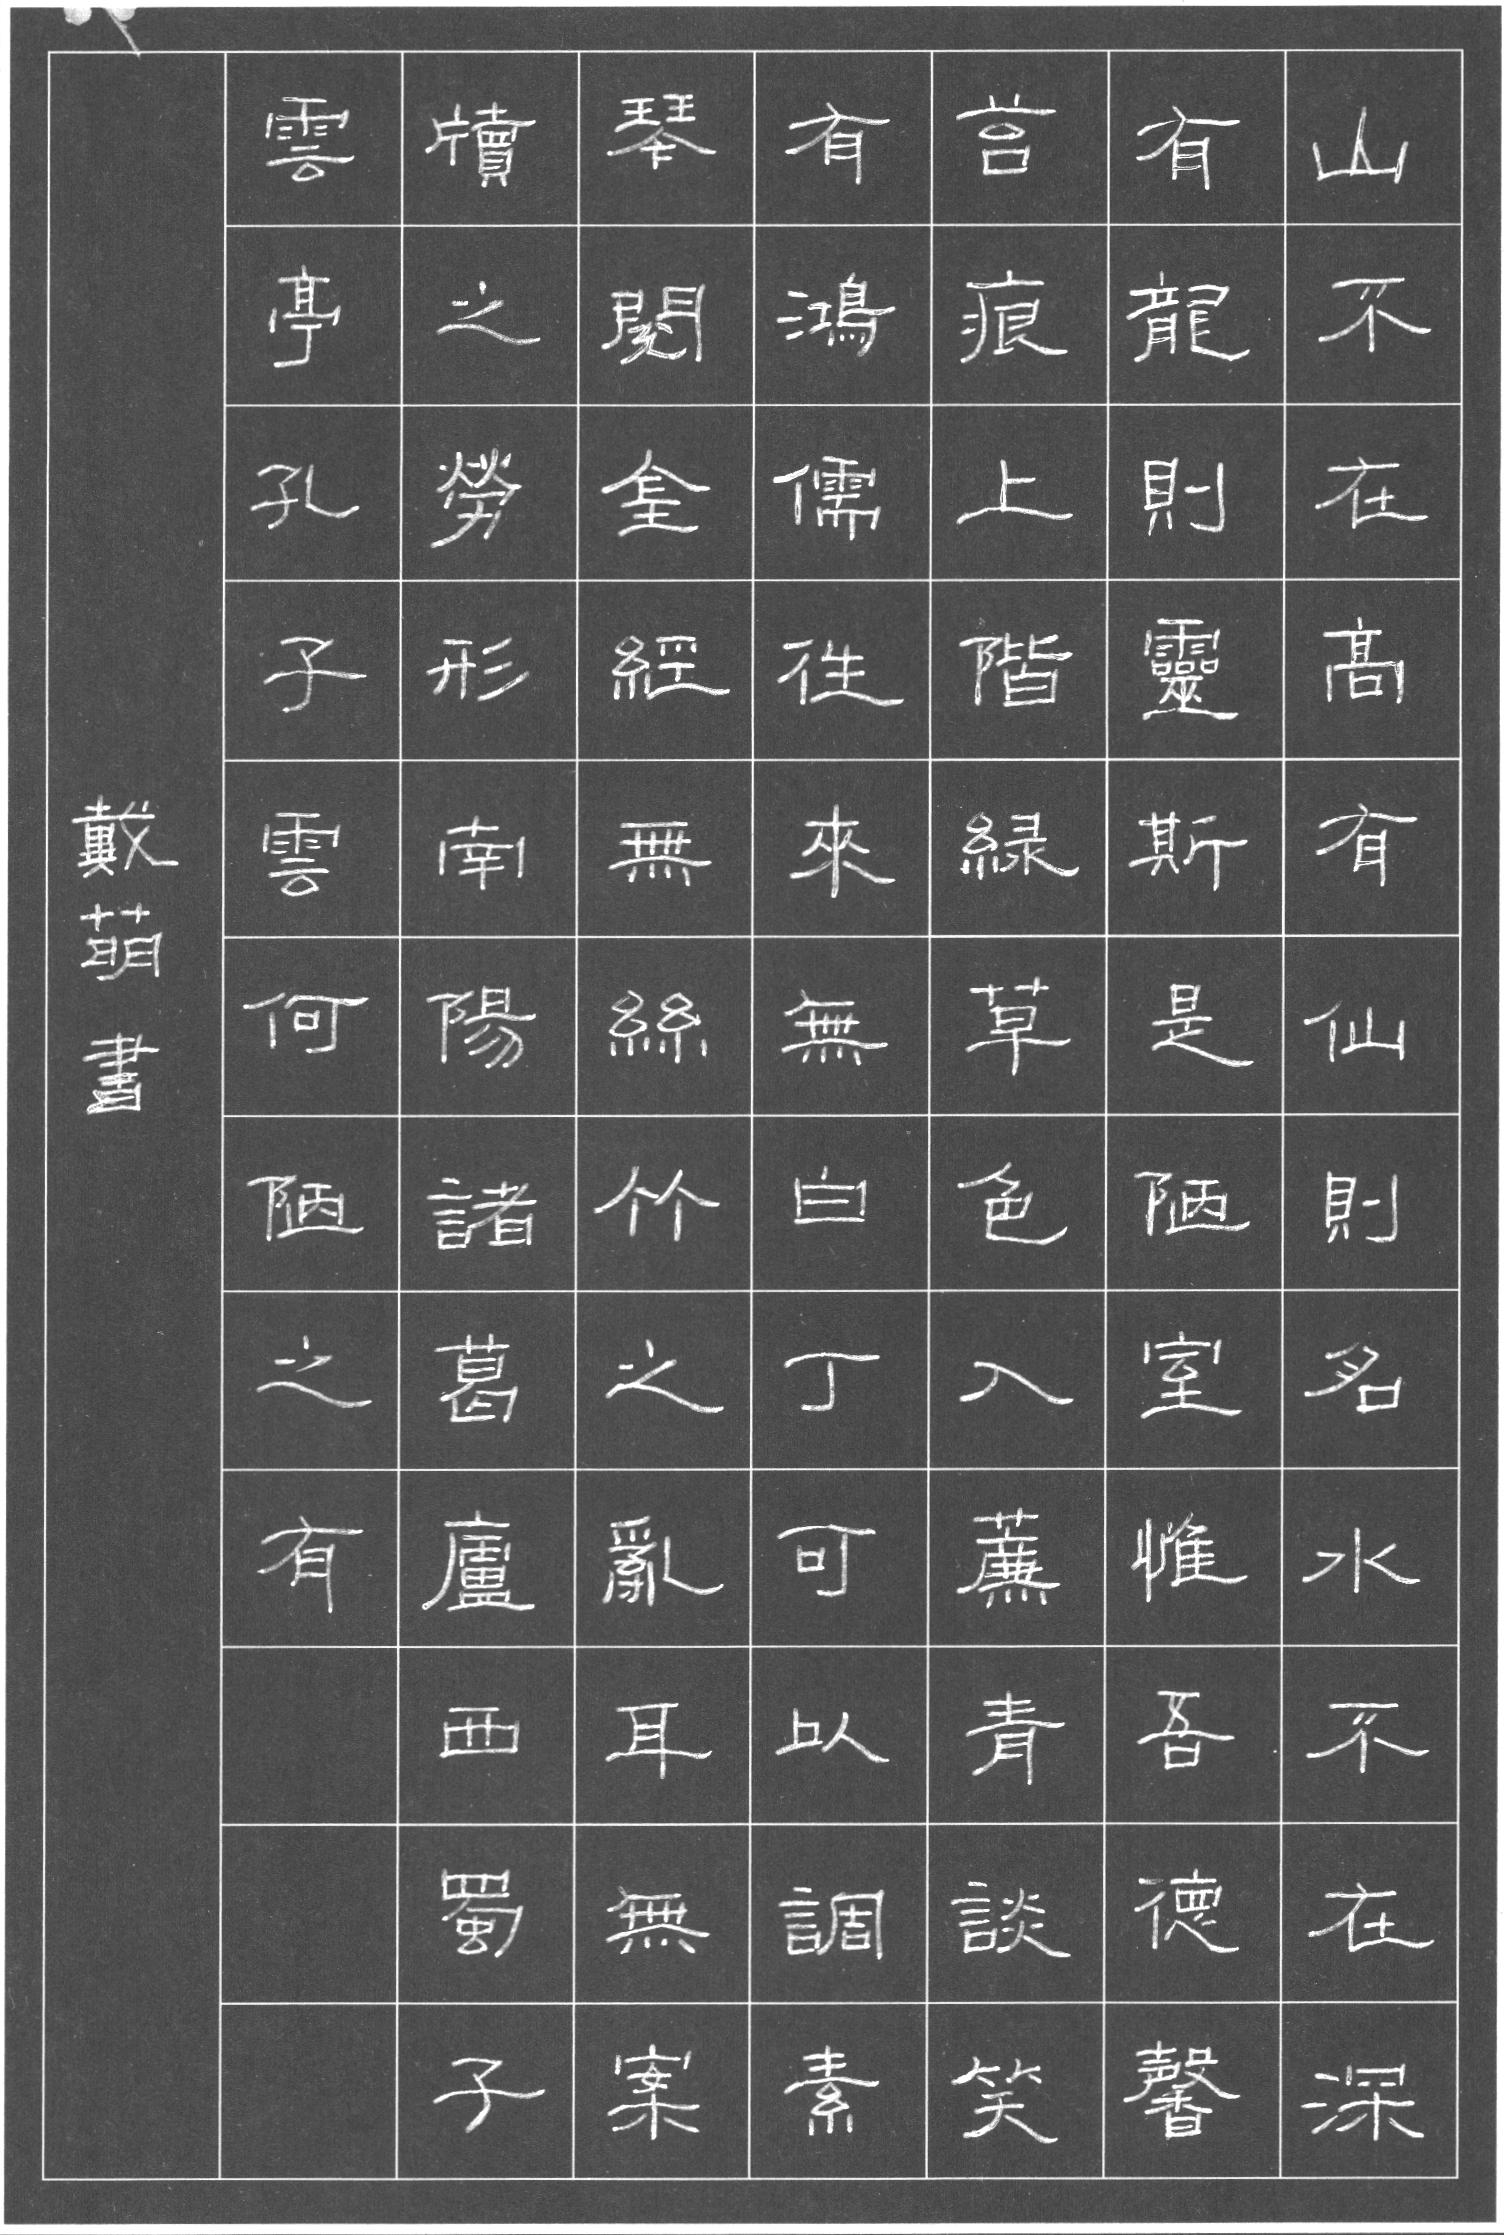 山不在高有仙則名水不在深
有龍則靈斯是陋室惟吾德馨
苔痕上階緑草色入薕青談笑
有鴻儒往來無白丁可以調素
琴閱金經無絲竹之亂耳無案
牘之勞形南陽諸葛廬西蜀子
雲亭孔子雲何陋之有
戴萌書